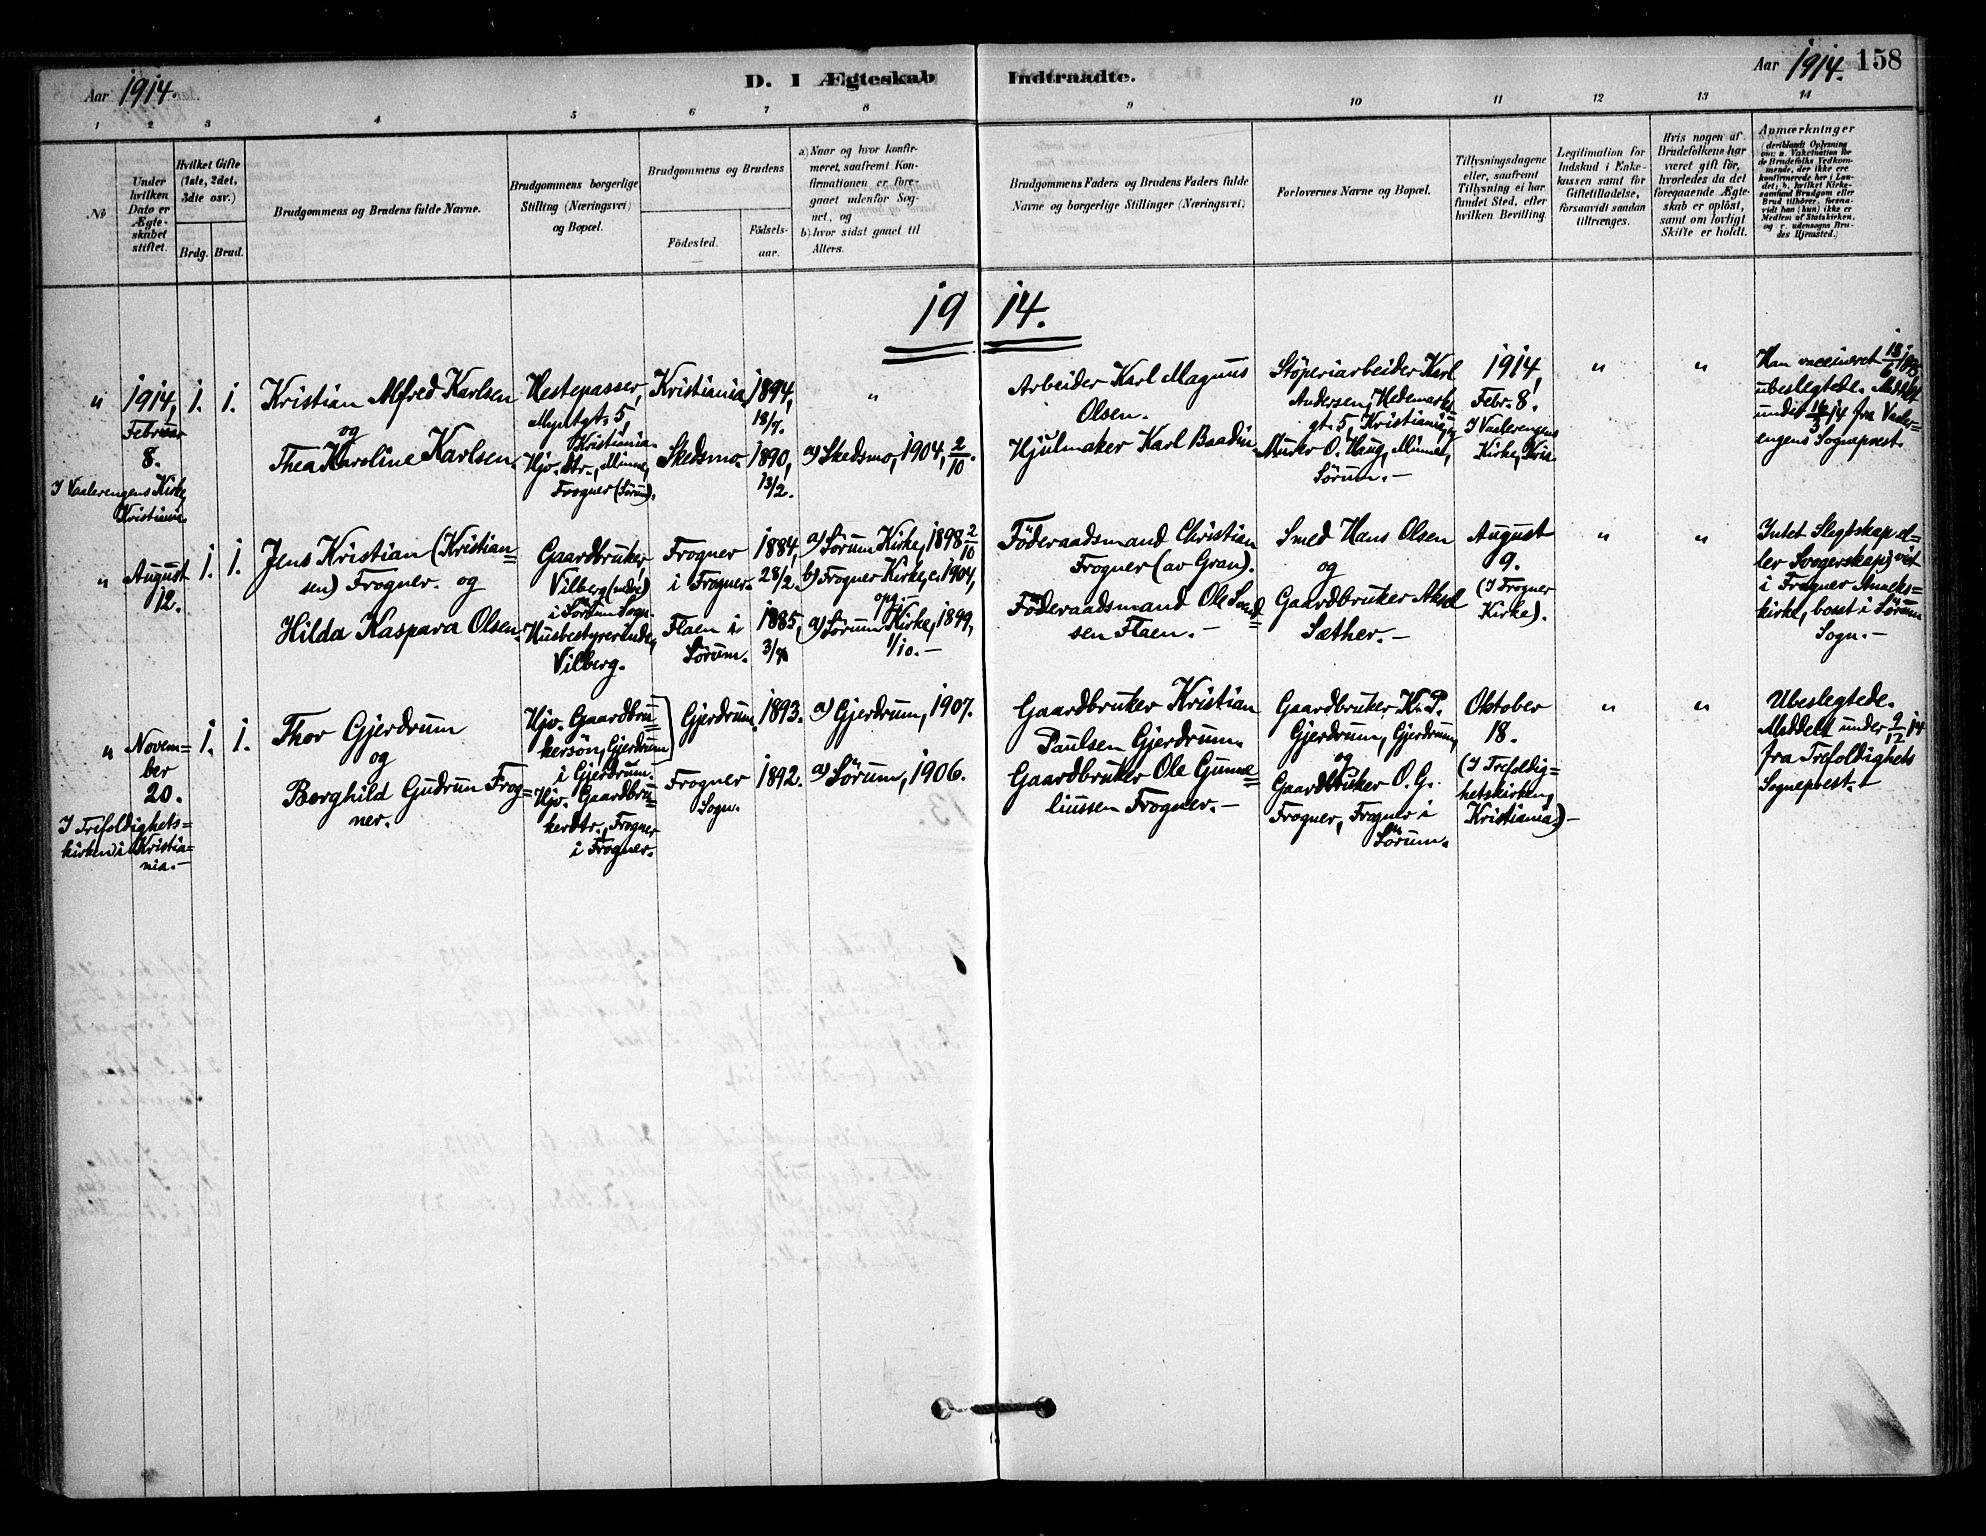 Aar 1914.
D. I Ægteskab Indtraadte.
Aar 1914. 158
1 2 3 4 5 6 7 8 9 10 11 12 13 14
No
Under hvilken Dato er Ægteskabet stiftet.
Hvilket Gifte (1ste, 2det, 3die osv.)
Brdg. Brud.
Brudgommens og Brudens fulde Navne.
Brudgommens borgerlige Stilling (Næringsvei) og Bopæl.
Brudgommens og Brudens
Födested.
Födsels-aar.
a) Naar og hvor konfirmeret, saafremt Konfirmationen er foregaaet udenför Sognet, og
b) hvor sidst gaaet til Alters.
Brudgommens Faders og Brudens Faders fulde Navne og borgerlige Stillinger (Næringsvei)
Forlovernes Navne og Bopæl.
Tillysningsdagene eller, saafremt Tillysning ei har fundet Sted, efter hvilken Bevilling.
Legitimation for Indskud i Enkekassen samt for Giftetilladelse, forsaavidt saadan tiltrænges.
Hvis nogen af Brudefolkene har været gift för, hvorledes da det foregaaende Ægteskab er oplöst, samt om lovligt Skifte er holdt.
Anmærkninger (deriblandt Oplysning om: a. Vakcination for de Brudefolks Vedkommende, der ikke ere konfirmerede her i Landet; b. hvilket Kirkesamfund Brudgom eller Brud tilhörer, forsaavidt han (hun) ikke er Medlem af Statskirken, og c. udensogns Brudes Hjemsted.)
1914.
" 1914, Februar 8.
I Vaalerengens Kirke, Kristiania.
1. 1.
Kristian Alfred Karlsen
og
Thea Karoline Karlsen.
Hestepasser,
5, Kristiania.
Hjv. dtr., Minne,
Frogner (Sörum).
Kristiania
Skedsmo.
1894, 18/7.
1890, 13/2.
"
a) Skedsmo, 1904, 2/10.
Arbeider Karl Magnus
Olsen.
Hjulmaker Karl
Stöperiarbeider Karl
Andersen, Hedemarks
gt. 5, Kristiania, og
Murer O. Haug, Minne,
Sörum. -
1914,
Febr. 8.
I Vaalerengens
Kirke, Kria.
" "
Han vaccineret
ubeslegtede. Meddelt
under 14 fra Vaalerengens
Sogneprest.
" August
12.
1. 1.
Jens Kristian (Kristian=
sen) Frogner. og
Hilda Kaspara Olsen.
Gaardbruker
Vilberg (nedre)
i Sörum Sogn.
Husbestyrerinde,
Vilberg.
Frogner
i Frogner.
Flaen i
Sörum.
1884,
28/2.
1885,
a) Sörum Kirke, 1898 2/10
b) Frogner Kirke, c. 1904,
opg. -
a) Sörum Kirke, 1899,
1/10. -
Föderaadsmand Christian
Frogner (av Gran).
Föderaadsmand Ole
sen Flaen. -
Smed Hans Olsen
og
Gaardbruker Aksel
Sæther. -
August
9.
(I Frogner
Kirke).
" "
Intet Slegtskap el=
ler Svogerskap; viet
i Frogner Anneks=
kirke, bosat i Sörum
Sogn. -
" Novem=
ber
20.
I Trefoldighets=
kirken i Kristia=
nia. -
1. 1.
Thor Gjerdrum
og
Borghild Gudrun Frog=
ner.
Hjv. Gaardbru=
kersön, Gjerdrum
i Gjerdrum.
Hjv. Gaardbru=
kerdtr., Frogner
i Frogner.
Gjerdrum.
Frogner
Sogn.
1893.
1892.
a) Gjerdrum, 1907.
a) Sörum, 1906.
Gaardbruker Kristian
Paulsen Gjerdrum.
Gaardbruker Ole Gunne=
liussen Frogner. -
Gaardbruker K. P.
Gjerdrum, Gjerdrum,
og
Gaardbruker O. G.
Frogner, Frogner i
Sörum.
Oktober
18.
(I Trefoldig=
hetskirken,
Kristiania) -
" "
Ubeslegtede.
Meddelt under 2/12 14
fra Trefoldighets
Sogneprest. -